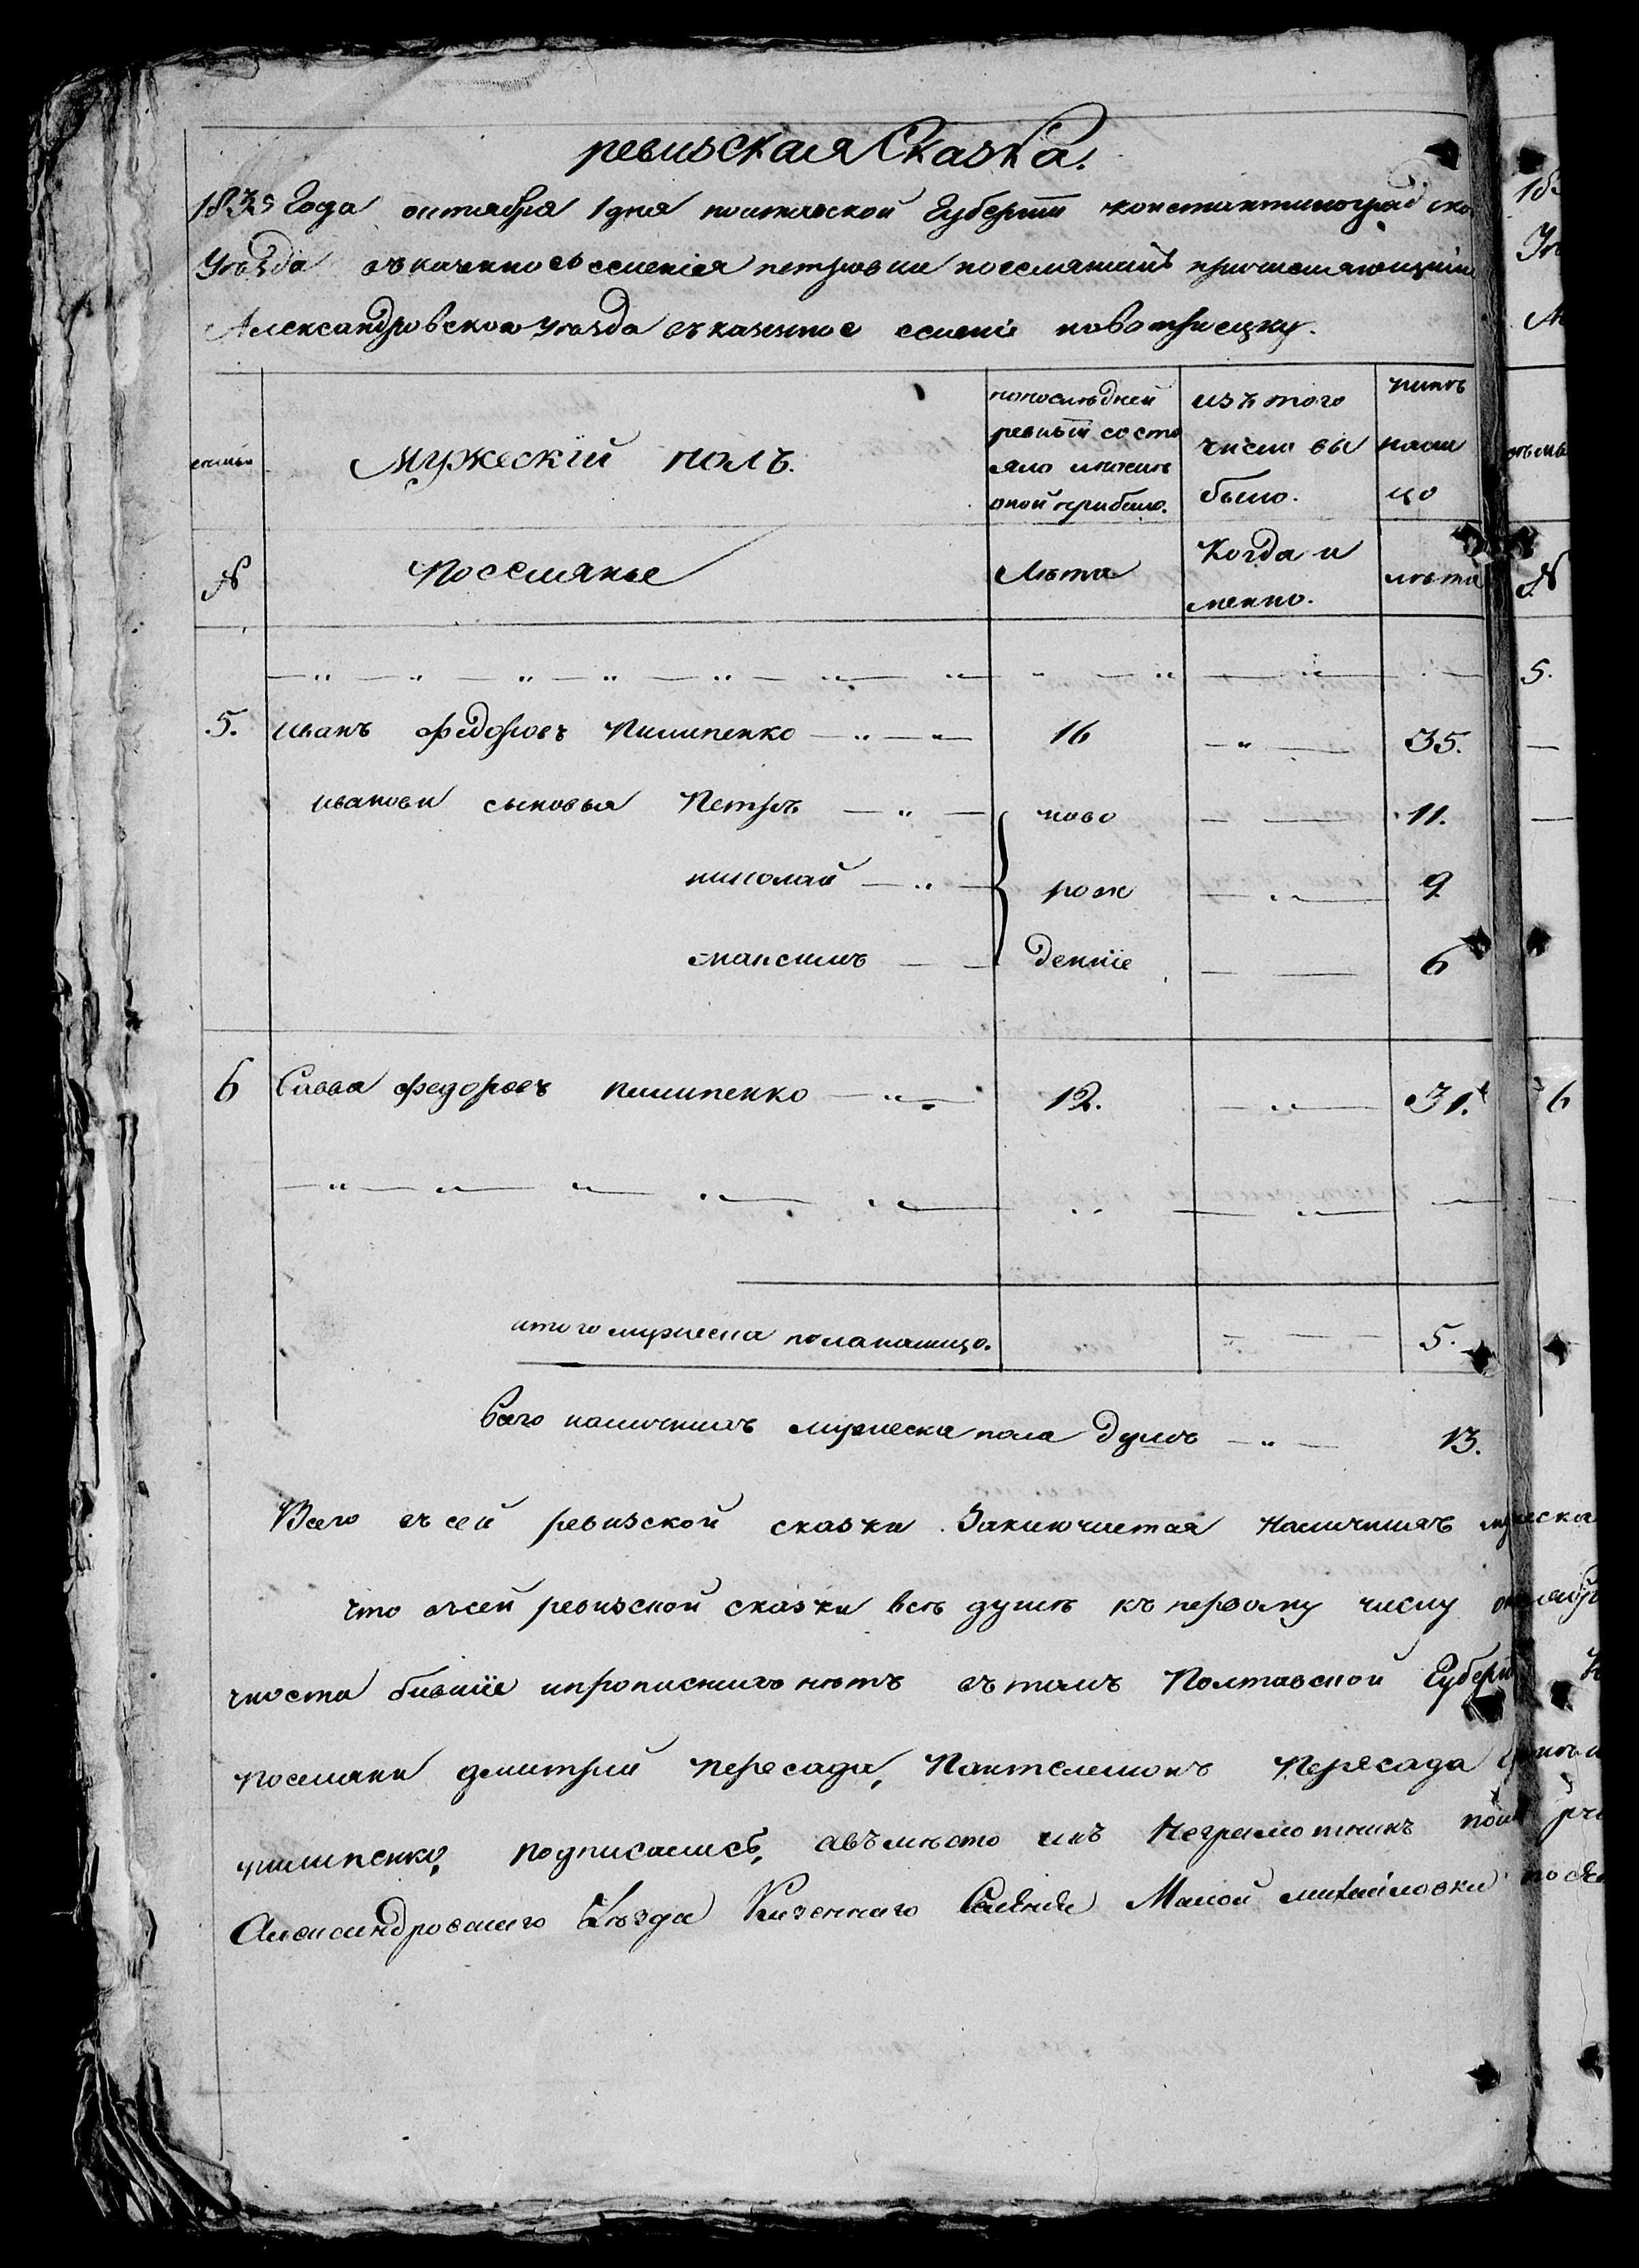 ревизская Сказка.
1835 Года октября 1 дня полтавской Губернии константиноград ско
Уѣзда съ казенно го селенiя петровки поселянинъ причисляющiи
Александровскою уѣзда въ казенное селенiе новотроецку.
мужескiй полъ.
попослѣдней ревизiи состо яло ипослѣ оной прибыло.
изъ того числа вы было.
нинѣ нали цо
семьи
№
Поселяне
Лѣта
Когда и менно.
лѣта
5. иванъ федоровъ Пилипенко 16 35.
ивановы сыновья Петръ ново 11.
николай рож 9
максимъ денные 6
6 Савва федоровъ пилипенко 12. 31.
итого мужеска пола налицо. 5.
Всего наличныхъ мужеска пола душъ 13.
Всего въ сей ревизской сказки Заключается наличныхъ мужеска
что въсей ревизской сказки всѣ души къ первому числу октября
чности бывшiе ипрописныхъ нѣтъ въ томъ Полтавской Губерн
поселяни дмитрий Пересада, Пантелемонъ Пересада
пилипенко, подписались, авъмѣсто ихъ Неграмотныхъ
Александровскаго Уѣзда Казеннаго Селенiя Малой михайловки